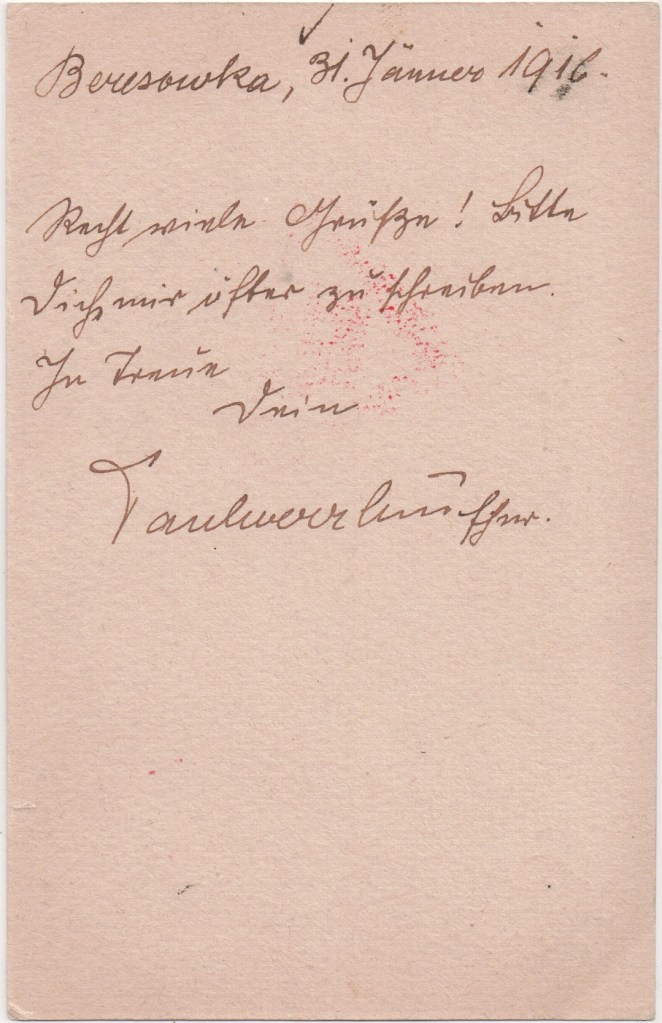 Beresowka, 31. Jänner 1916.
Recht viele Grüße! Bitte
Dich, mir öfter zu schreiben.
In Treue
Dein